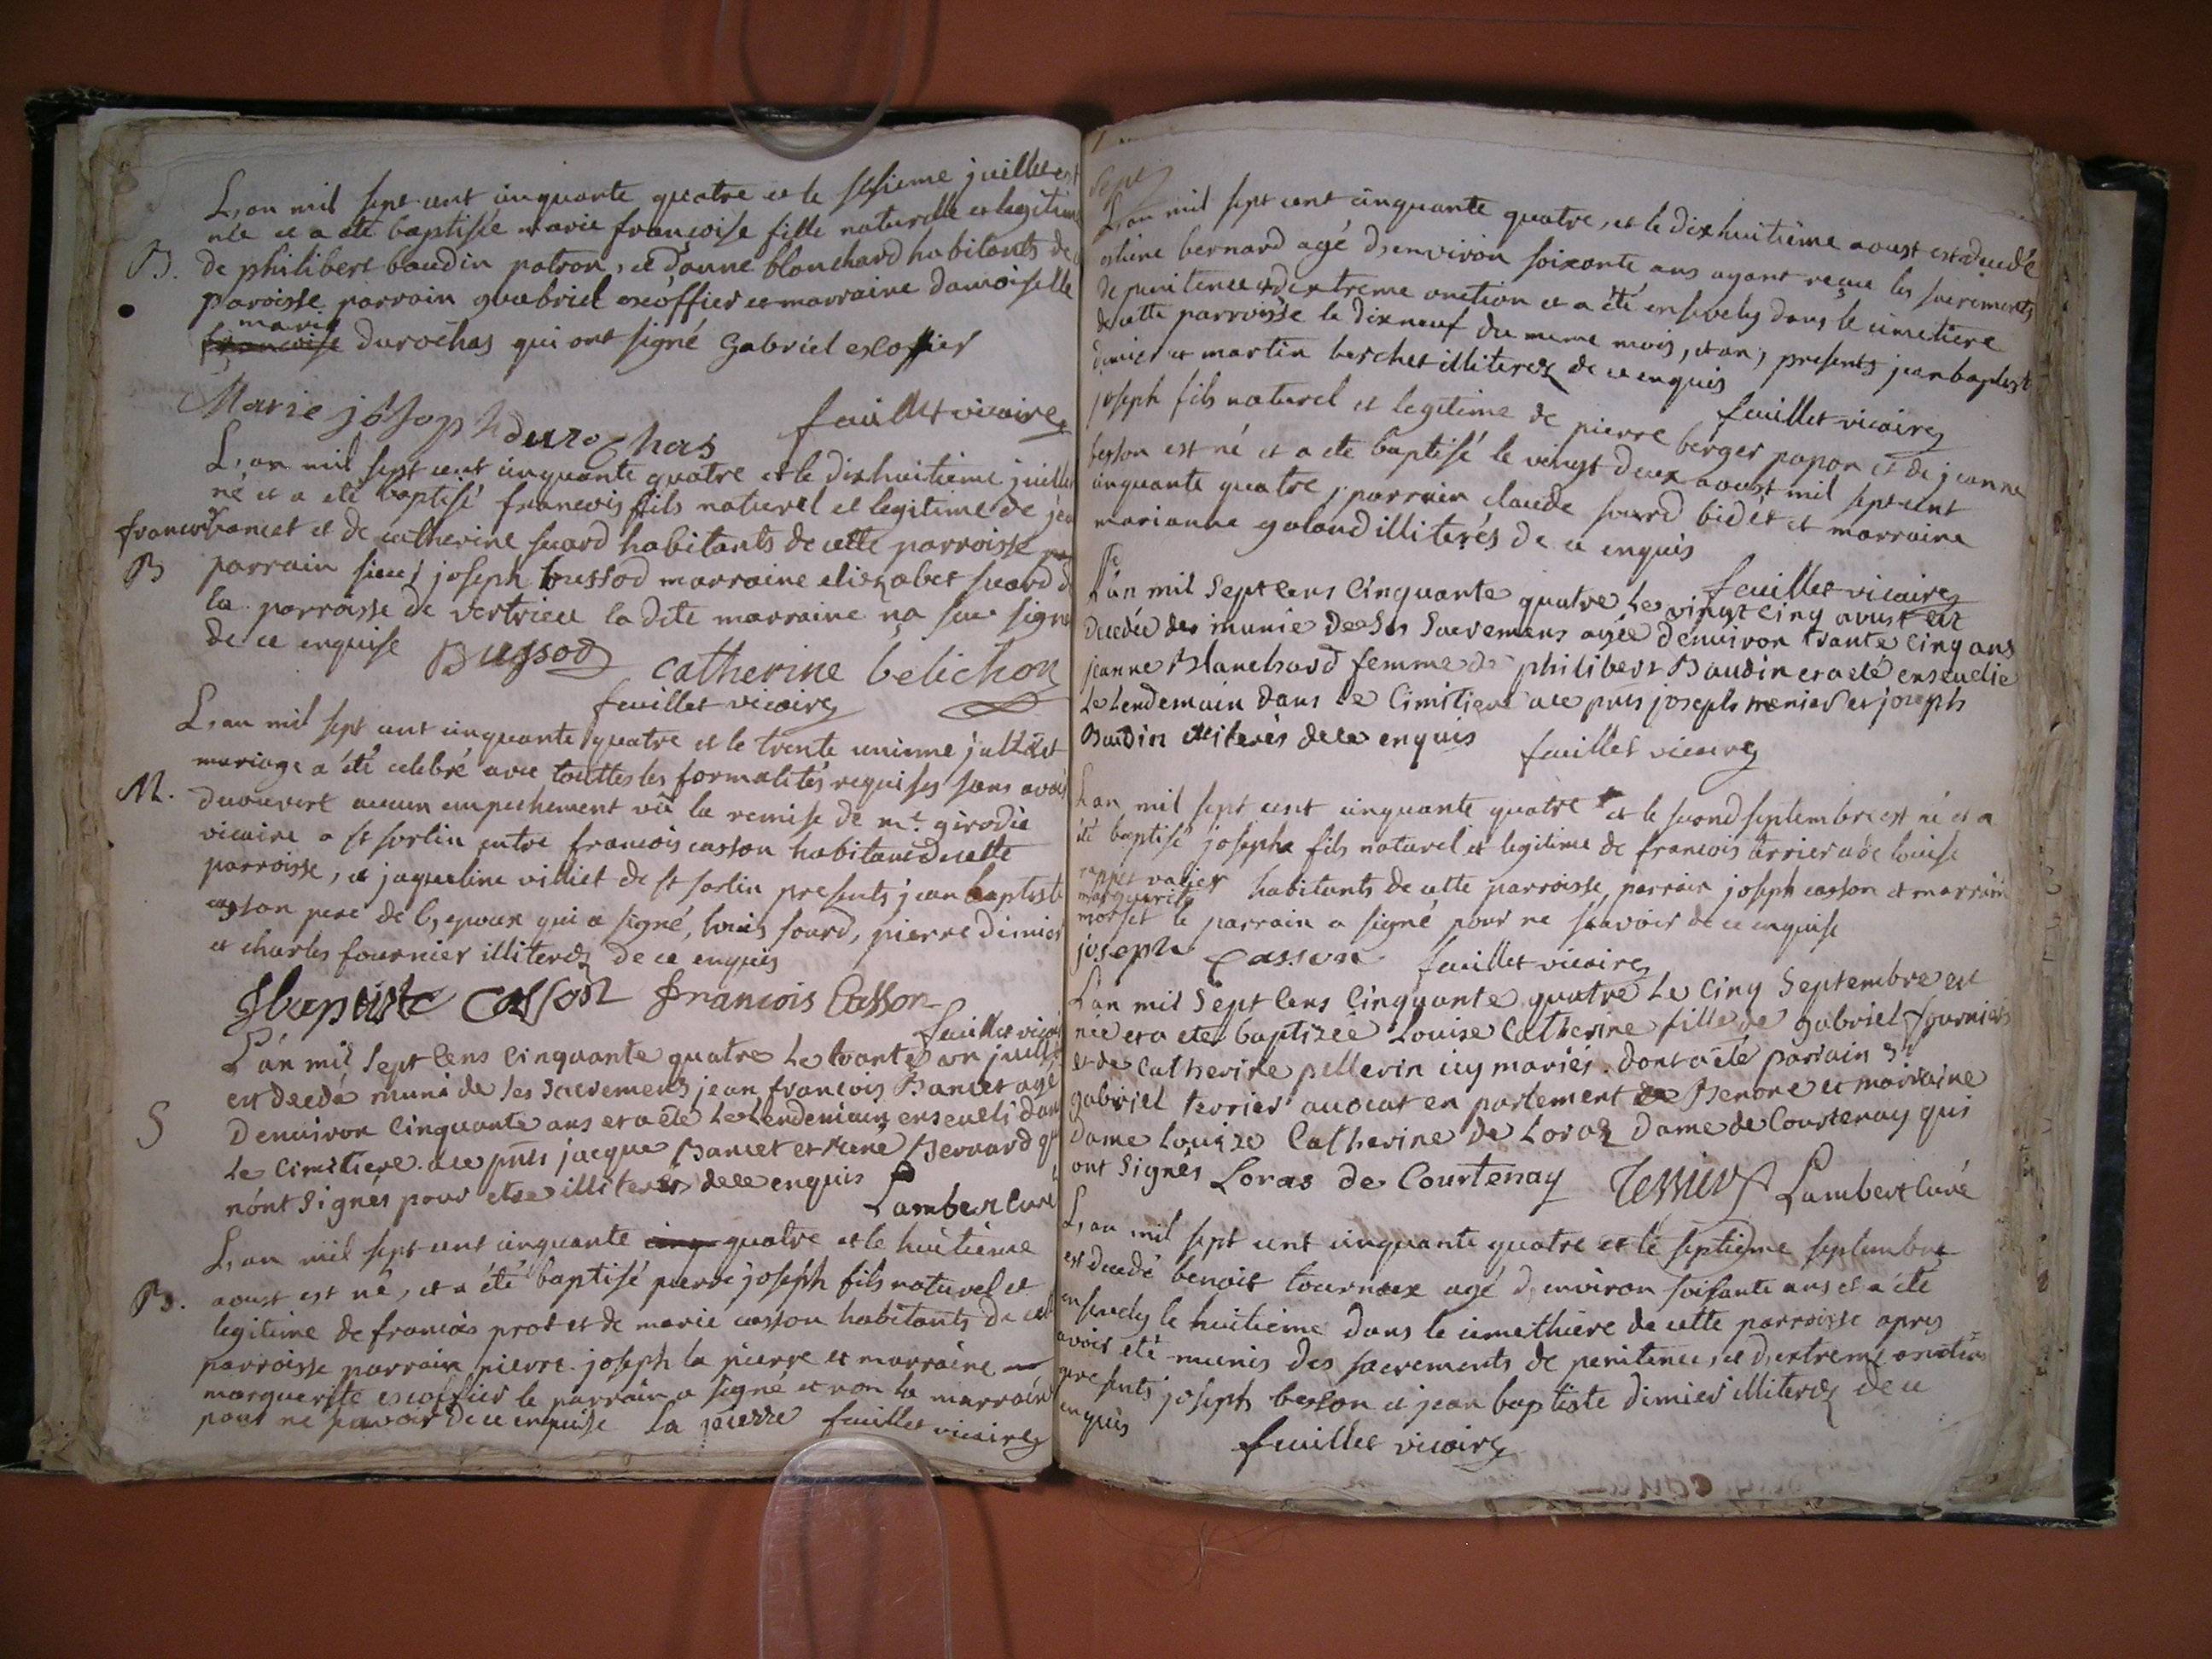 L'an mil sept cent cinquante quatre et le sesieme juillet est
née et a eté baptisée marie françoise fille naturelle et legitime
B. de philibert baudin patron, et d'anne blanchard habitants de
paroisse parrain guabriel escoffier et marraine damoiselle
marie
françoise durochas qui ont signé Gabriel escoffier
Marie joseph durochas feuillet vicaire
L'an mil sept cent cinquante quatre et le dixhuitieme juillet
né et a eté baptisé francois fils naturel et legitime de jean
francois bancet et de catherine suard habitants de cette parroisse
B parrain sieur joseph bussod marraine elizabet suard d
la parroisse de vertrieu la dite marraine na sue signe
de ce enquise Bussod catherine belichon
feuillet vicaire
L'an mil sept cent cinquante quatre et le trente unieme juillet
mariage a été celebré avec touttes les formalités requises sans avoir
M. decouvert aucun empechement vû la remise de mr. girodie
vicaire a st sorlin entre francois casson habitant de cette
parroisse, et jaqueline villiet de st sorlin presents jean baptiste
casson pere de l'epoux qui a signé, louis sourd, pierre dimier
et charles fournier illiterez de ce enquis
Jbaptiste Casson francois Casson
feuillet vicaire
L'an mil sept Cens Cinquante quatre Le trante un juillet
est decedé muni de ses sacremens jean francois Bancet agé
Denuiron Cinquante ans et a été Le Lendemain enseueli dans
S Le Cimitiere. a ce pnts jacque Bancet et René Bernard qui
n'ont signés pour etre illiterés de ce enquis
Lambert Curé
L'an mil sept cent cinquante cinq quatre et le huitieme
aoust est né, et a été baptisé pierre joseph fils naturel et
B. legitime de francois prost et de marie casson habitants de cett
parroisse parrain pierre joseph la pierre et marraine
marguerite escoffier le parrain a signé et non la marraine
pour ne savoir de ce enquise la pierre feuillet vicaire
Sept
L'an mil sept cent cinquante quatre, et le dixhuitieme aoust est decedé
estiene bernard agé d'environ soixante ans ayant reçue les sacrements
de penitence et dextreme onction et a été ensevely dans le cimetiere
de cette parroisse le dixneuf du meme mois, et an, presents jean baptiste
dimier et martin berchet illiterez de ce enquis
feuillet vicaire
joseph fils naturel et legitime de pierre berger papon et de jeanne
besson est né et a ete baptisé le vingt deux aoust mil sept cent
cinquante quatre, parrain claude sourd bidet et marraine
marianne galand illiterés de ce enquis
feuillet vicaire
L'an mil sept Cens Cinquante quatre Le vingt Cinq aoust est
decedée munie de ses sacremens agée denuiron trante Cinq ans
jeanne Blanchard femme de philibert Baudin et a eté enseuelie
Le Lendemain dans Le Cimitiere a ce pnts joseph menier et joseph
Baudin illiterés de ce enquis feuillet vicaire
L'an mil sept cent cinquante quatre et le second septembre est né et a
été baptisé joseph fils naturel et legitime de francois terrier et de louise
rappet valier habitants de cette parroisse, parrain joseph casson et marraine
marguerite
morset le parrain a signé pour ne scavoir de ce enquise
joseph Casson feuillet vicaire
L'an mil sept Cens Cinquante quatre Le Cinq Septembre est
née et a eté baptizeé Louise Catherine fille de gabriel fournier
et de Catherine pellerin icy mariés. dont a été parrain Sr
gabriel terrier auocat en parlement de Benone et marraine
Dame Louize Catherine de Loraz dame de Courtenay qui
ont signés Loras de Courtenay Terrier Lambert Curé
L'an mil sept cent cinquante quatre et le septieme septembre
est decedé benoit tournoux agé d'environ soisante ans et a été
ensevely le huitieme dans le cimethiere de cette parroisse apres
avoir été munis des sacrements de penitence, et d'extreme onction
presents joseph besson et jean baptiste dimier illiterez de ce
enquis
feuillet vicaire